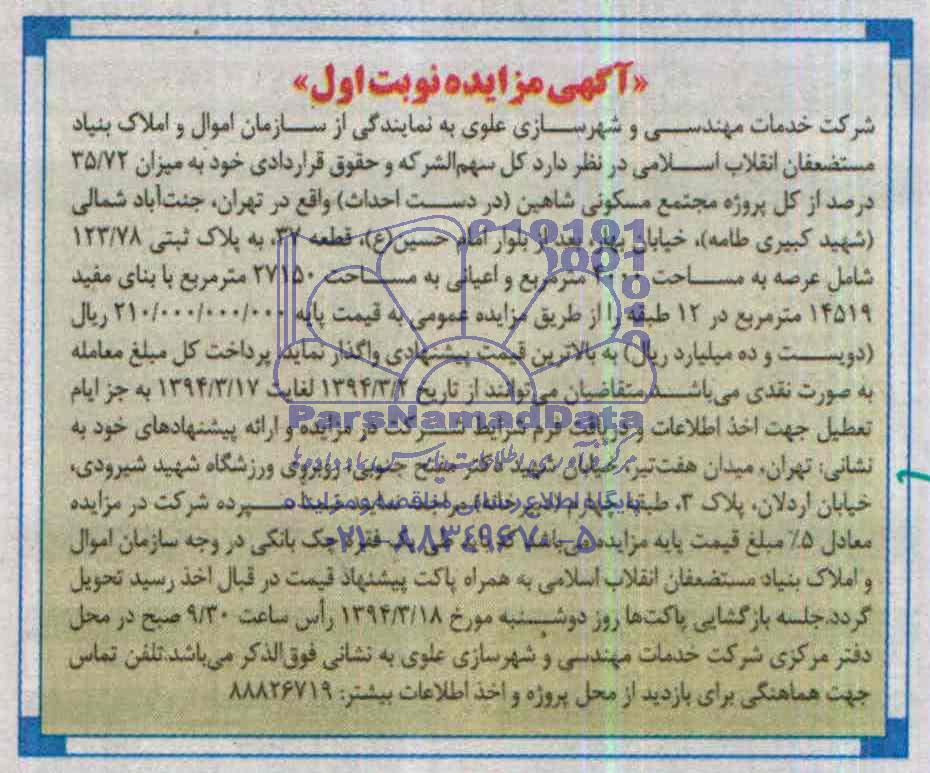 «آگهی مزایده نوبت اول»
شرکت خدمات مهندسی و شهرسازی علوی به نمایندگی از سازمان اموال و املاک بنیاد
مستضعفان انقلاب اسلامی در نظر دارد کل سهم‌الشرکه و حقوق قراردادی خود به میزان ۳۵/۷۲
درصد از کل پروژه مجتمع مسکونی شاهین (در دست احداث) واقع در تهران، جنت‌آباد شمالی
(شهید کبیری طامه)، خیابان بهار، بعد از بلوار امام حسین(ع)، قطعه ۳۷، به پلاک ثبتی ۱۲۳/۷۸
شامل عرصه به مساحت ۴۰۰۰ مترمربع و اعیانی به مساحت ۲۷۱۵۰ مترمربع با بنای مفید
۱۴۵۱۹ مترمربع در ۱۲ طبقه را از طریق مزایده عمومی به قیمت پایه ۲۱۰/۰۰۰/۰۰۰/۰۰۰ ریال
(دویست و ده میلیارد ریال) به بالاترین قیمت پیشنهادی واگذار نماید. پرداخت کل مبلغ معامله
به صورت نقدی می‌باشد. متقاضیان می‌توانند از تاریخ ۱۳۹۴/۳/۲ لغایت ۱۳۹۴/۳/۱۷ به جز ایام
تعطیل جهت اخذ اطلاعات و دریافت فرم شرایط شرکت در مزایده و ارائه پیشنهادهای خود به
نشانی: تهران، میدان هفت‌تیر، خیابان شهید دکتر مفتح جنوبی، روبروی ورزشگاه شهید شیرودی،
خیابان اردلان، پلاک ۳، طبقه چهارم (دبیرخانه) مراجعه نمایند. سپرده شرکت در مزایده
معادل ۵٪ مبلغ قیمت پایه مزایده می‌باشد که طی یک فقره چک بانکی در وجه سازمان اموال
و املاک بنیاد مستضعفان انقلاب اسلامی به همراه پاکت پیشنهاد قیمت در قبال اخذ رسید تحویل
گردد.جلسه بازگشایی پاکت‌ها روز دوشنبه مورخ ۱۳۹۴/۳/۱۸ رأس ساعت ۹/۳۰ صبح در محل
دفتر مرکزی شرکت خدمات مهندسی و شهرسازی علوی به نشانی فوق‌الذکر می‌باشد.تلفن تماس
جهت هماهنگی برای بازدید از محل پروژه و اخذ اطلاعات بیشتر: ۸۸۸۲۶۷۱۹
ParsNamadData
پایگاه اطلاع رسانی مناقصه و مزایده
۰۲۱-۸۸۳۴۹۶۷۰-۵